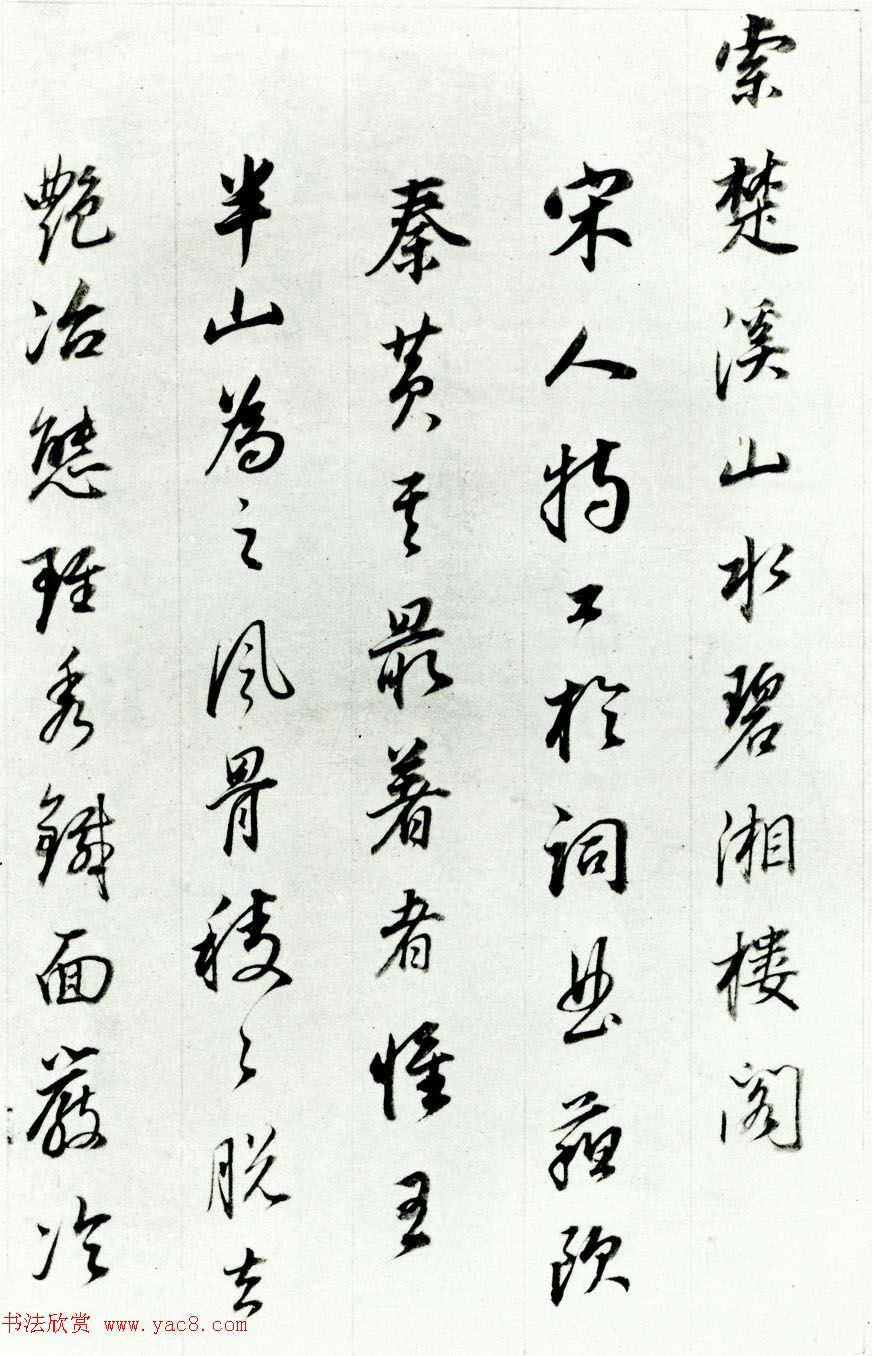 索楚溪山水碧湘樓閣
宋人特工於詞曲蘇歐
秦黄其最著者惟王
半山為之風骨稜々脱去
艶冶態踓秀鐵面嚴冷
书法欣赏 www.yac8.com